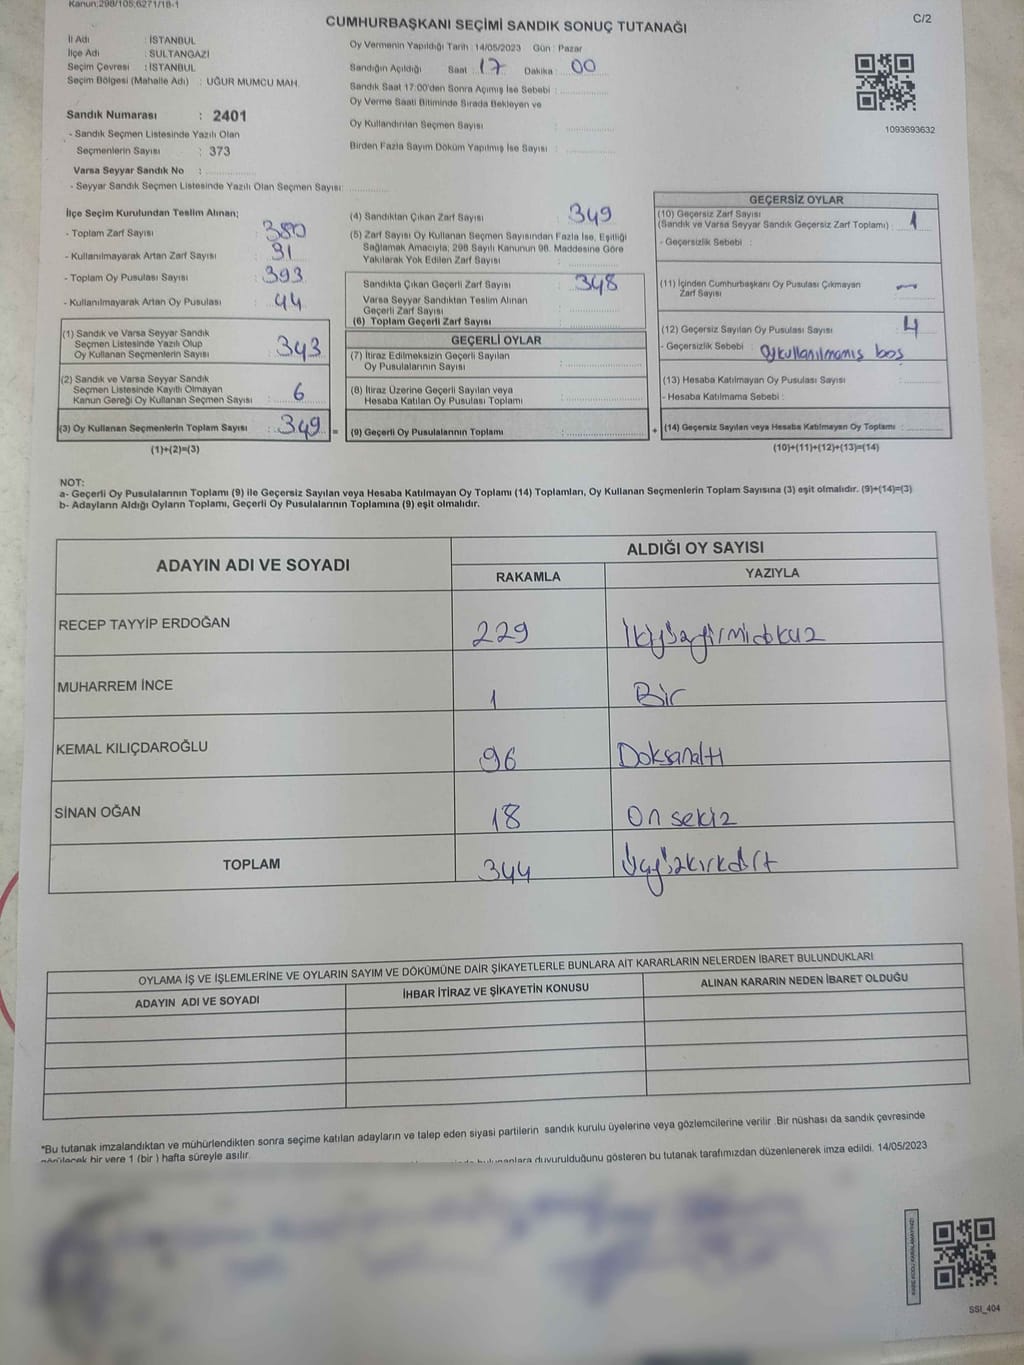 Kanun:298/105;6271/18-1
CUMHURBAŞKANI SEÇİMİ SANDIK SONUÇ TUTANAĞI
C/2
İl Adı : İSTANBUL
İlçe Adı : SULTANGAZİ
Seçim Çevresi : İSTANBUL
Seçim Bölgesi (Mahalle Adı) : UĞUR MUMCU MAH.
Sandık Numarası : 2401
- Sandık Seçmen Listesinde Yazılı Olan
Seçmenlerin Sayısı : 373
Varsa Seyyar Sandık No :
- Seyyar Sandık Seçmen Listesinde Yazılı Olan Seçmen Sayısı:
Oy Vermenin Yapıldığı Tarih : 14/05/2023 Gün : Pazar
Sandığın Açıldığı Saat : 17 Dakika : 00
Sandık Saat 17:00'den Sonra Açımış İse Sebebi :
Oy Verme Saati Bitiminde Sırada Bekleyen ve
Oy Kullandırılan Seçmen Sayısı :
Birden Fazla Sayım Döküm Yapılmış İse Sayısı :
1093693632
İlçe Seçim Kurulundan Teslim Alınan;
- Toplam Zarf Sayısı : 380
- Kullanılmayarak Artan Zarf Sayısı : 31
- Toplam Oy Pusulası Sayısı : 393
- Kullanılmayarak Artan Oy Pusulası : 44
(1) Sandık ve Varsa Seyyar Sandık
Seçmen Listesinde Yazılı Olup
Oy Kullanan Seçmenlerin Sayısı : 343
(2) Sandık ve Varsa Seyyar Sandık
Seçmen Listesinde Kayıtlı Olmayan
Kanun Gereği Oy Kullanan Seçmen Sayısı : 6
(3) Oy Kullanan Seçmenlerin Toplam Sayısı : 349 =
(1)+(2)=(3)
(4) Sandıktan Çıkan Zarf Sayısı : 349
(5) Zarf Sayısı Oy Kullanan Seçmen Sayısından Fazla İse, Eşitliği
Sağlamak Amacıyla, 298 Sayılı Kanunun 98. Maddesine Göre
Yakılarak Yok Edilen Zarf Sayısı :
Sandıkta Çıkan Geçerli Zarf Sayısı : 348
Varsa Seyyar Sandıktan Teslim Alınan
Geçerli Zarf Sayısı :
(6) Toplam Geçerli Zarf Sayısı :
GEÇERLİ OYLAR
(7) İtiraz Edilmeksizin Geçerli Sayılan
Oy Pusulalarının Sayısı :
(8) İtiraz Üzerine Geçerli Sayılan veya
Hesaba Katılan Oy Pusulası Toplamı :
(9) Geçerli Oy Pusulalarının Toplamı : +
GEÇERSİZ OYLAR
(10) Geçersiz Zarf Sayısı
(Sandık ve Varsa Seyyar Sandık Geçersiz Zarf Toplamı) : 1
- Geçersizlik Sebebi :
(11) İçinden Cumhurbaşkanı Oy Pusulası Çıkmayan
Zarf Sayısı : —
(12) Geçersiz Sayılan Oy Pusulası Sayısı : 4
- Geçersizlik Sebebi : oykullanılmamış boş
(13) Hesaba Katılmayan Oy Pusulası Sayısı :
- Hesaba Katılmama Sebebi :
(14) Geçersiz Sayılan veya Hesaba Katılmayan Oy Toplamı :
(10)+(11)+(12)+(13)=(14)
NOT:
a- Geçerli Oy Pusulalarının Toplamı (9) ile Geçersiz Sayılan veya Hesaba Katılmayan Oy Toplamı (14) Toplamları, Oy Kullanan Seçmenlerin Toplam Sayısına (3) eşit olmalıdır. (9)+(14)=(3)
b- Adayların Aldığı Oyların Toplamı, Geçerli Oy Pusulalarının Toplamına (9) eşit olmalıdır.
ADAYIN ADI VE SOYADI
ALDIĞI OY SAYISI
RAKAMLA YAZIYLA
RECEP TAYYİP ERDOĞAN 229 İkiyüzyirmidokuz
MUHARREM İNCE 1 Bir
KEMAL KILIÇDAROĞLU 96 Doksanaltı
SİNAN OĞAN 18 On sekiz
TOPLAM 344 Üçyüzkırkdört
OYLAMA İŞ VE İŞLEMLERİNE VE OYLARIN SAYIM VE DÖKÜMÜNE DAİR ŞİKAYETLERLE BUNLARA AİT KARARLARIN NELERDEN İBARET BULUNDUKLARI
ADAYIN ADI VE SOYADI İHBAR İTİRAZ VE ŞİKAYETİN KONUSU ALINAN KARARIN NEDEN İBARET OLDUĞU
*Bu tutanak imzalandıktan ve mühürlendikten sonra seçime katılan adayların ve talep eden siyasi partilerin sandık kurulu üyelerine veya gözlemcilerine verilir .Bir nüshası da sandık çevresinde
görülecek bir yere 1 (bir ) hafta süreyle asılır.
bulunanlara duyurulduğunu gösteren bu tutanak tarafımızdan düzenlenerek imza edildi. 14/05/2023
SSI_404